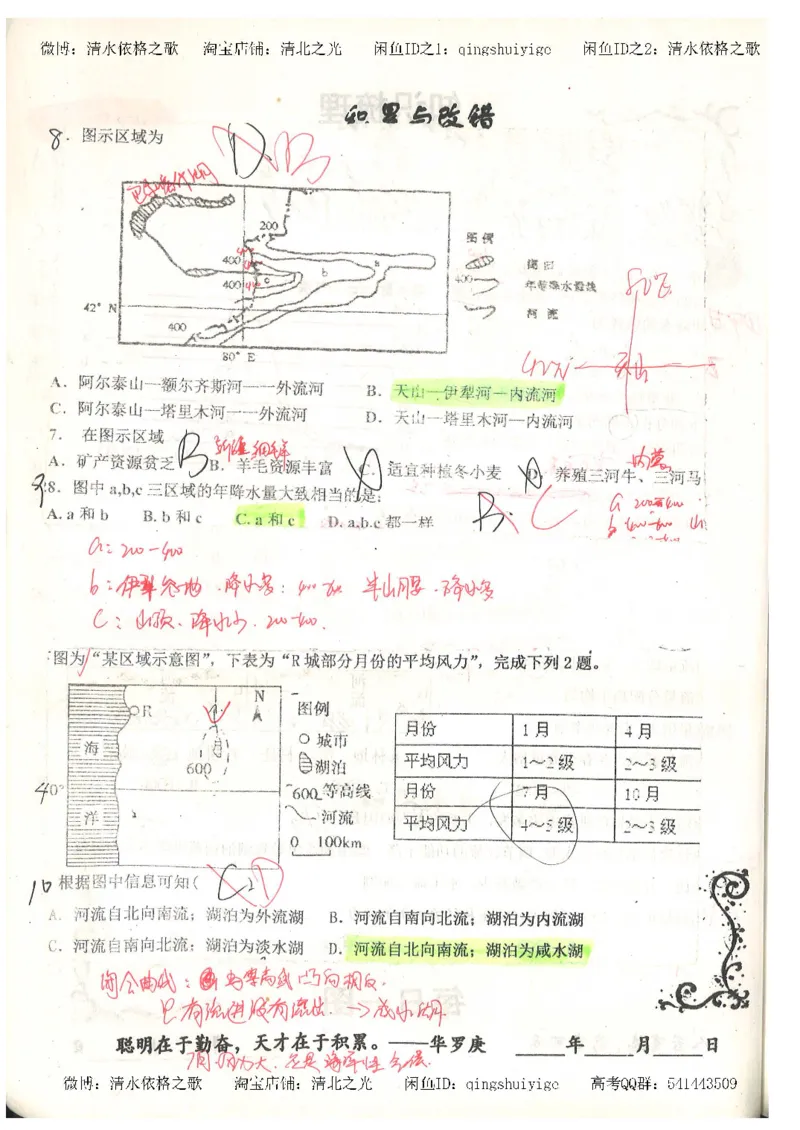 微博：清水依格之歌 淘宝店铺：清北之光 闲鱼ID之1：qingshuiyige 闲鱼ID之2：清水依格之歌
积累与改错
8. 图示区域为 D B
巴尔喀什湖
200
图例
400
湖泊
b
a
400
c
400 年等降水量线
42° N
河流
400
80° E
天山
A. 阿尔泰山—额尔齐斯河—外流河 B. 天山—伊犁河—内流河
C. 阿尔泰山—塔里木河—外流河 D. 天山—塔里木河—内流河
7. 在图示区域 B 新疆细羊 内蒙
A. 矿产资源贫乏 B. 羊毛资源丰富 C. 适宜种植冬小麦 D. 养殖三河牛、三河马
8. 图中 a,b,c 三区域的年降水量大致相当的是:
A. a 和 b B. b 和 c C. a 和 c D. a.b.c 都一样 B C
a: 200-400
b: 伊犁谷地. 降水多: 半山腰. 降水多
C: 山顶. 降水少. 200-400.
图为“某区域示意图”，下表为“R 城部分月份的平均风力”，完成下列 2 题。
R
N
海
600
40°
洋
图例
城市
湖泊
600 等高线
河流
0 100km
月份 1月 4月
平均风力 1～2级 2～3级
月份 7月 10月
平均风力 4～5级 2～3级
10 根据图中信息可知( C ) D
A. 河流自北向南流；湖泊为外流湖 B. 河流自南向北流；湖泊为内流湖
C. 河流自南向北流；湖泊为淡水湖 D. 河流自北向南流；湖泊为咸水湖
闭合曲线: 与等高线凸向相反.
只有流进没有流出. → 咸水湖
聪明在于勤奋，天才在于积累。——华罗庚 年 月 日
微博：清水依格之歌 淘宝店铺：清北之光 闲鱼ID：qingshuiyige 高考QQ群：541443509